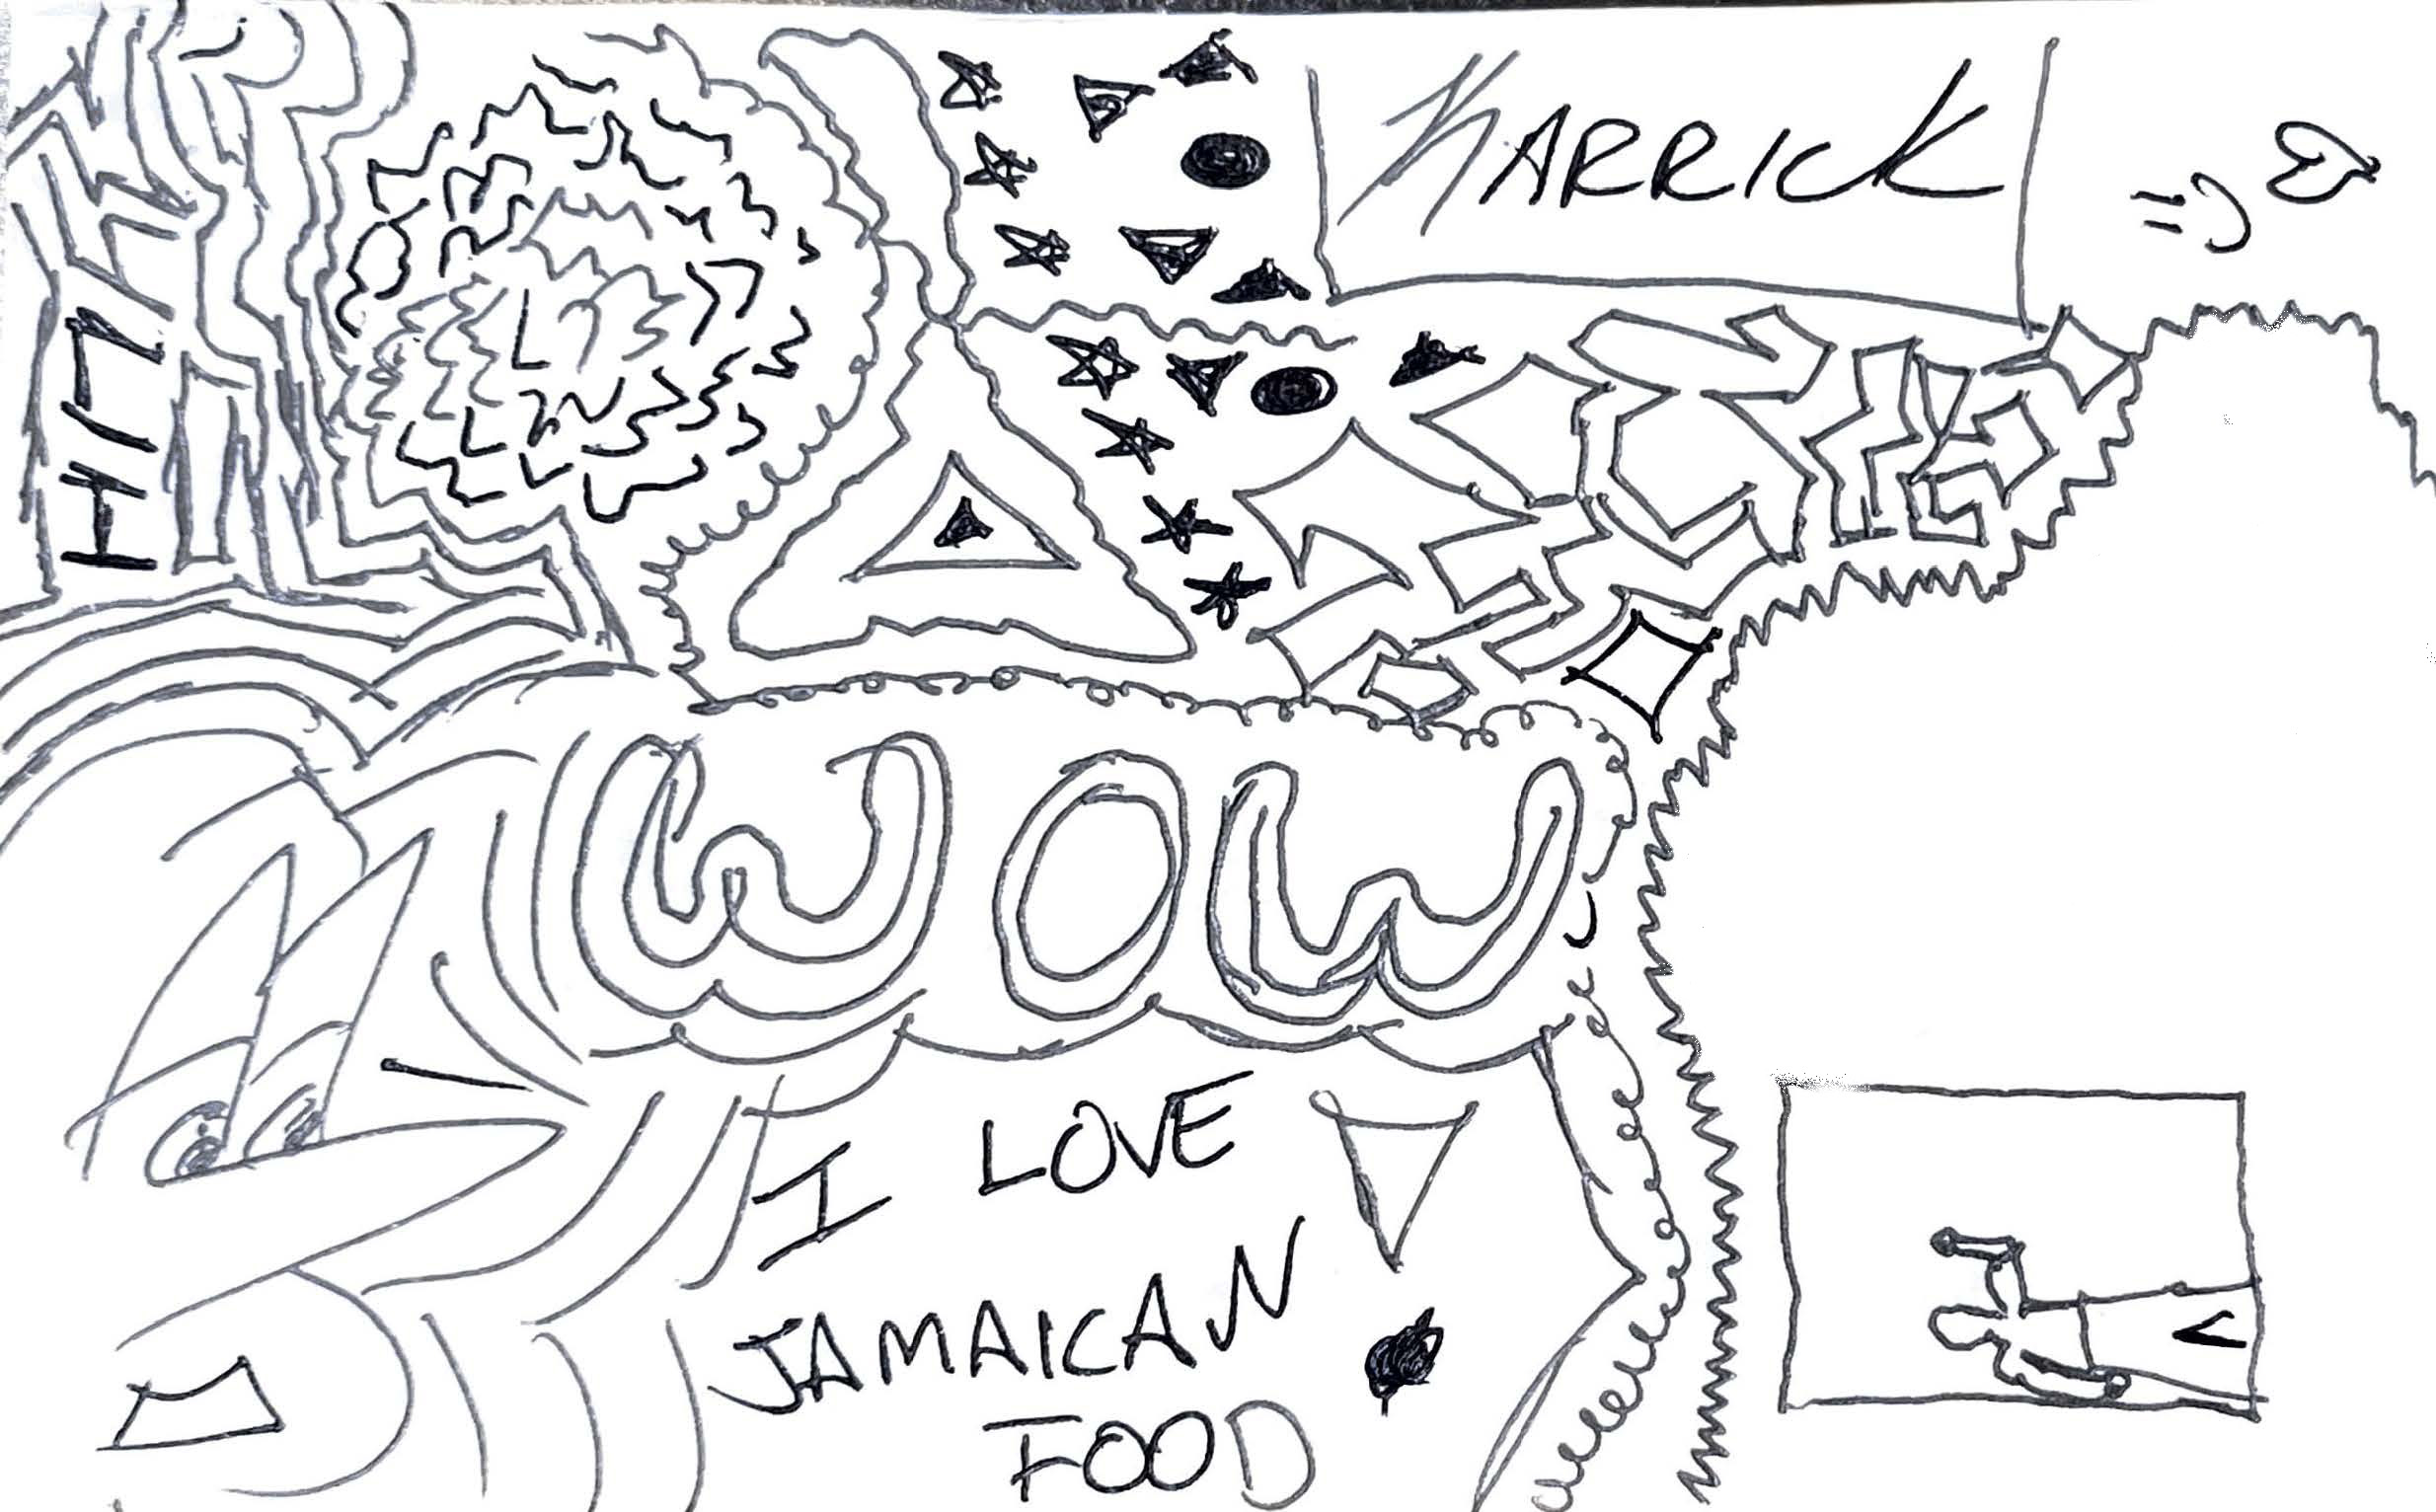 KARRICK =)
WOW
I LOVE
JAMAICAN
FOOD